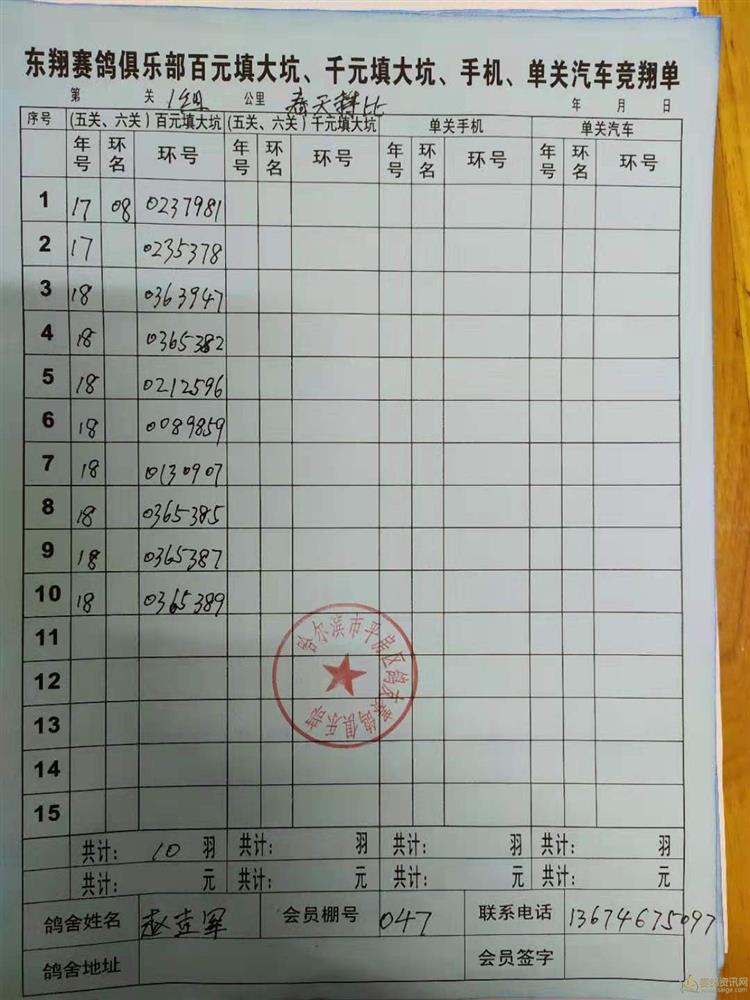 东翔赛鸽俱乐部百元填大坑、千元填大坑、手机、单关汽车竞翔单
第 关 1组 公里 春天 比 年 月 日
序号 (五关、六关)百元填大坑 (五关、六关)千元填大坑 单关手机 单关汽车
年号 环名 环号 年号 环名 环号 年号 环名 环号 年号 环名 环号
1 17 08 0237981
2 17 0235378
3 18 0363947
4 18 0365382
5 18 0212596
6 18 0089859
7 18 0130907
8 18 0365385
9 18 0365387
10 18 0365389
11
12
13
14
15
哈尔滨市平房区鸽友赛鸽俱乐部
共计: 10 羽 共计: 羽 共计: 羽 共计: 羽
共计: 元 共计: 元 共计: 元 共计: 元
鸽舍姓名 赵 军 会员棚号 047 联系电话 13674675097
鸽舍地址 会员签字
赛鸽资讯网
www.saige.com